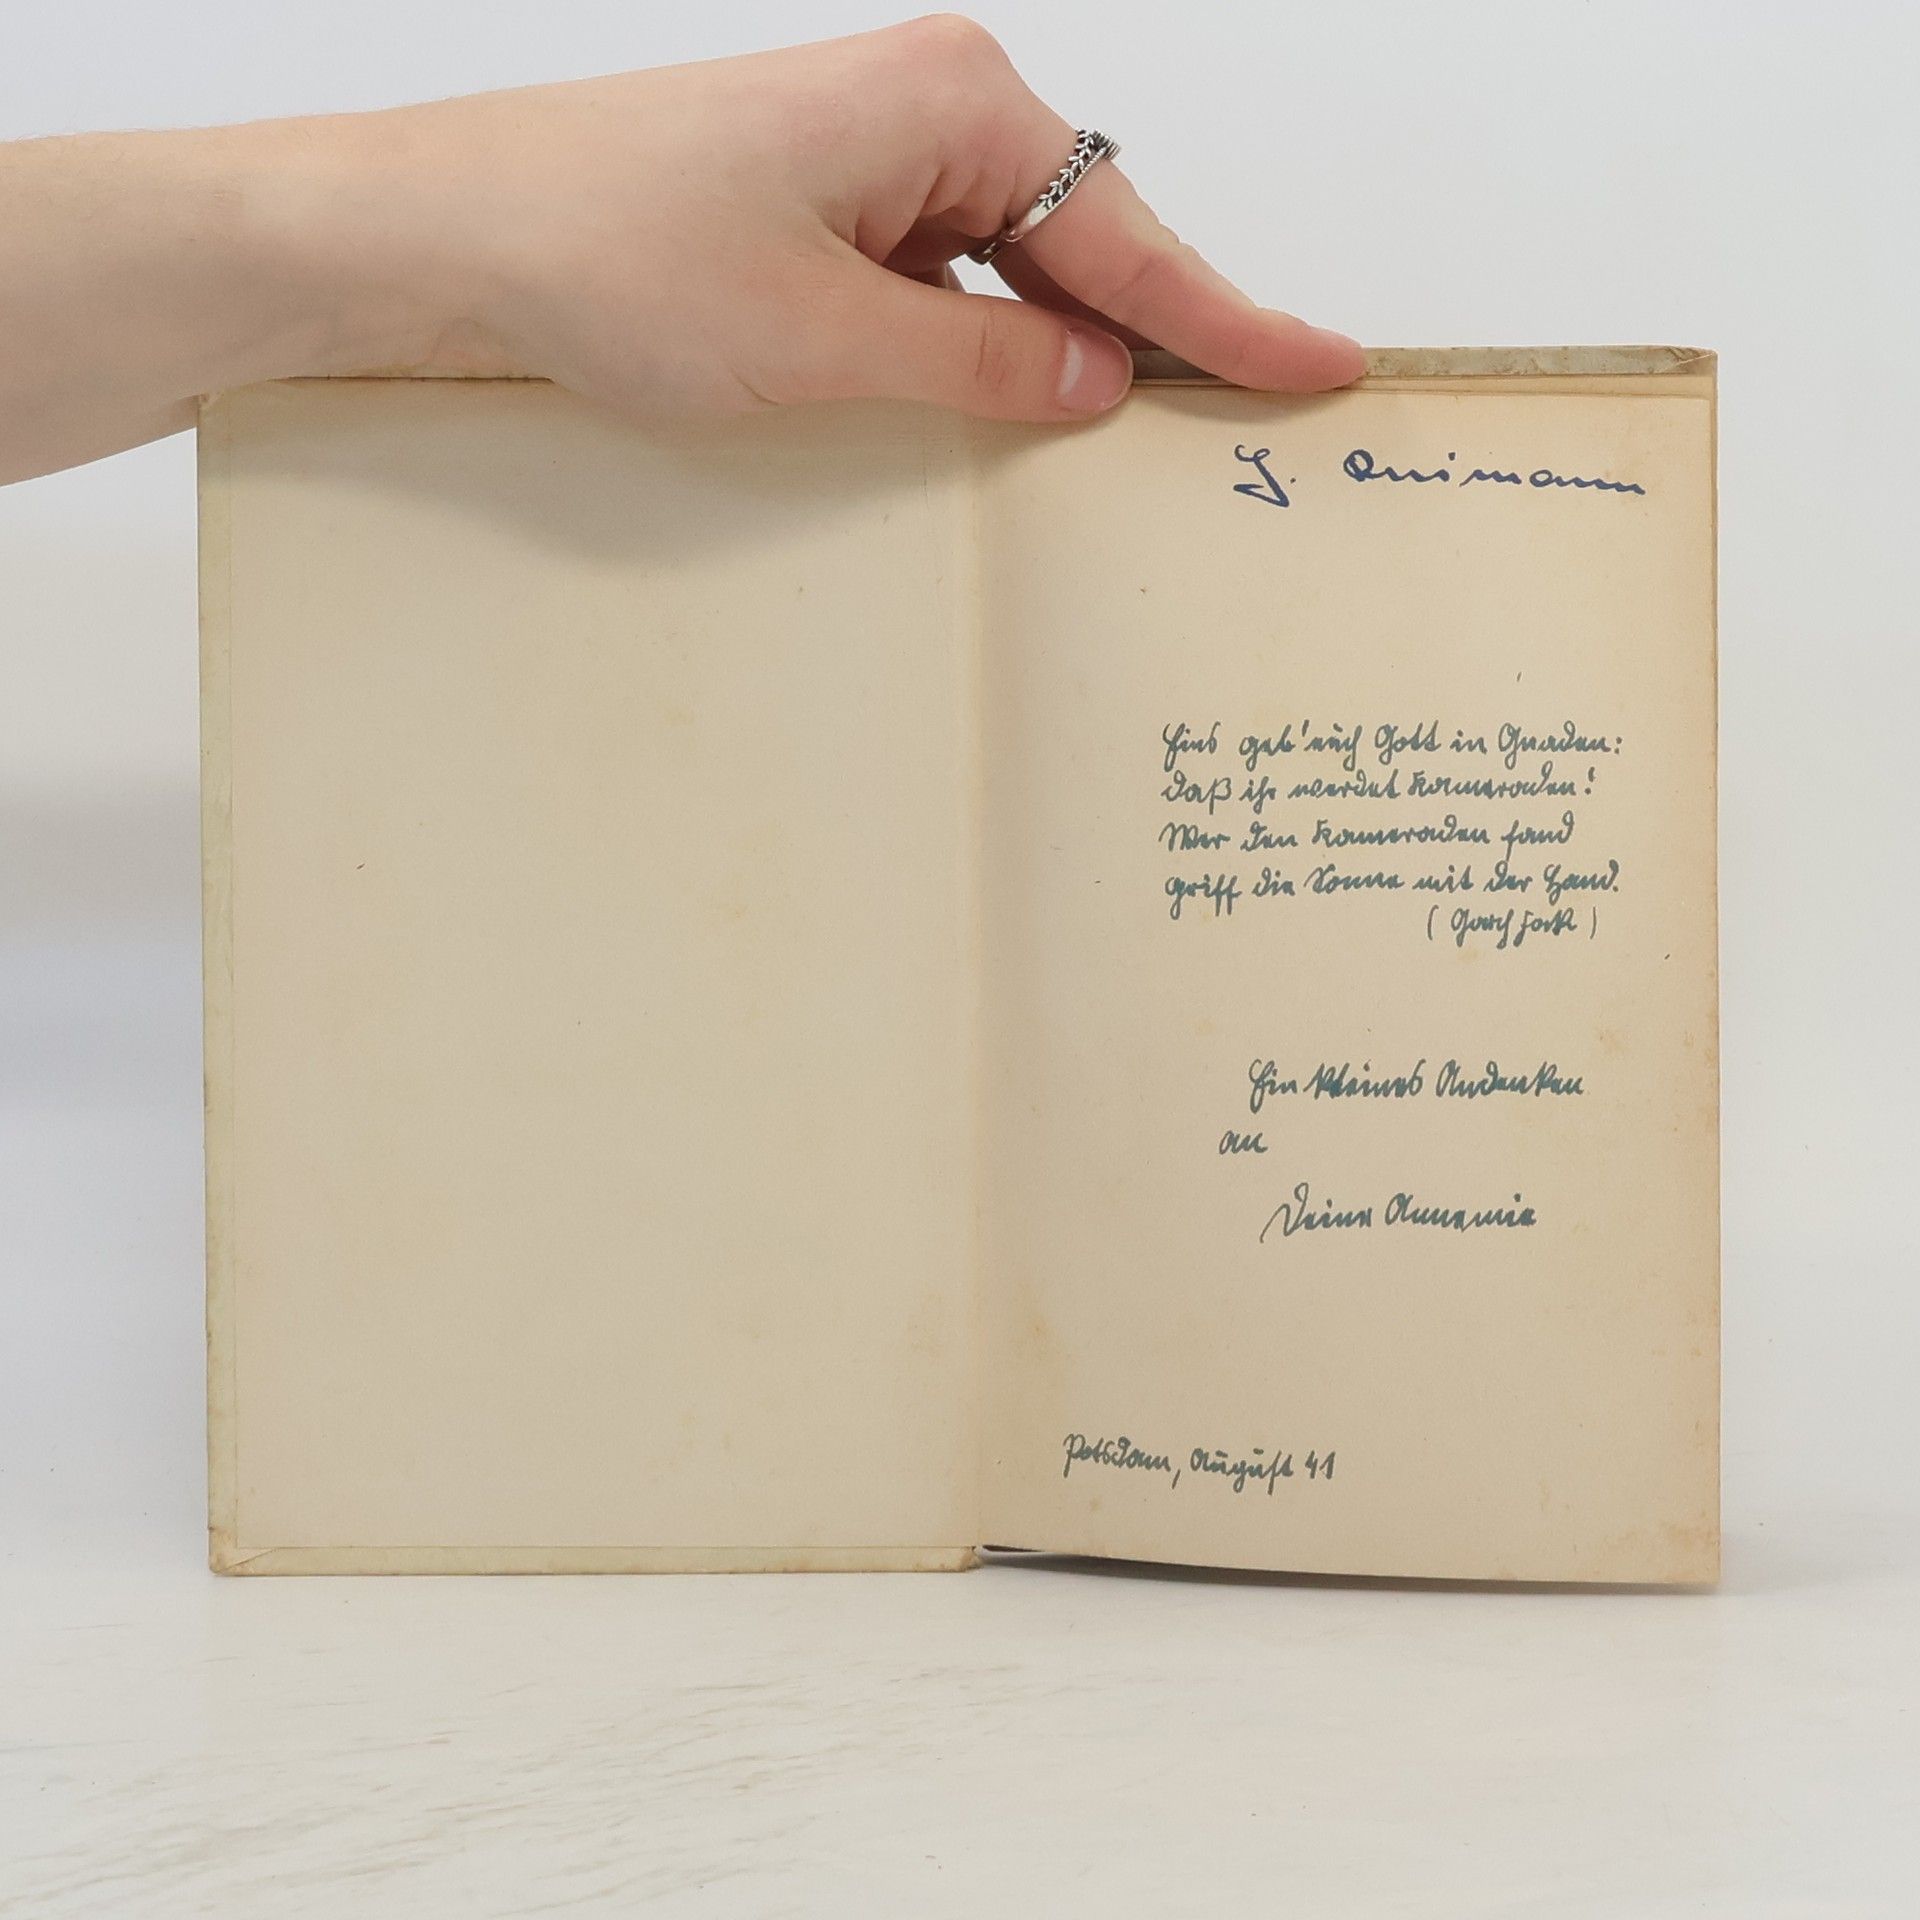 Eins geb' euch Gott in Gnaden:
daß ihr werdet Kameraden!
Wer den Kameraden fand
griff die Sonne mit der Hand.
( Gorch Fock )
Ein kleines Andenken
an
Deine Annemie
Potsdam, August 41